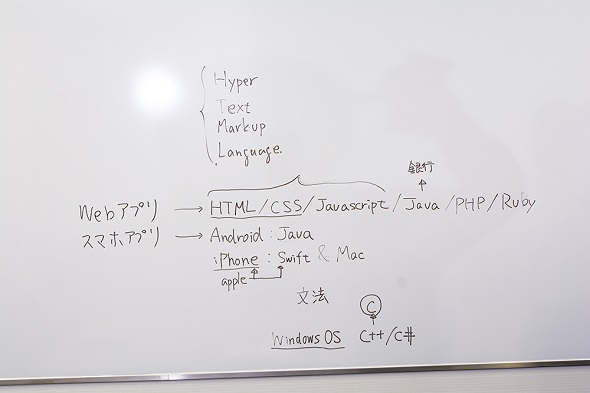 Hyper
Text
Markup
Language.
銀行
Webアプリ → HTML/CSS/Javascript/Java/PHP/Ruby
スマホアプリ → Android:Java
iPhone:Swift & Mac
apple
文法
C
Windows OS C++/C#